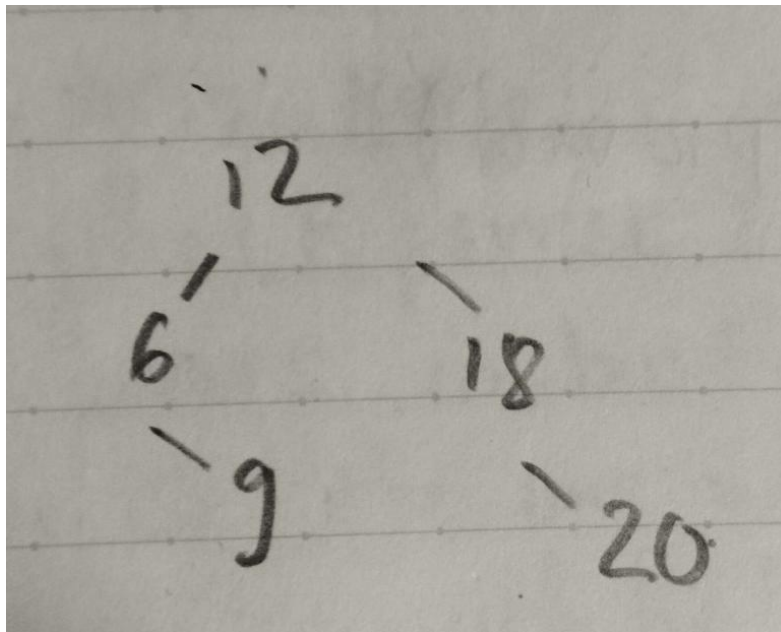 12
6 18
9 20